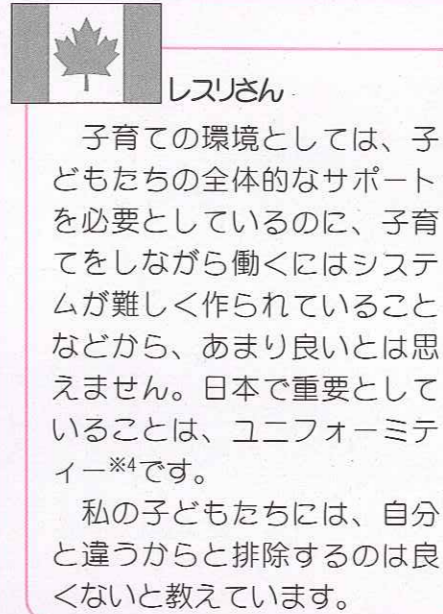 レスリさん
子育ての環境としては、子
どもたちの全体的なサポート
を必要としているのに、子育
てをしながら働くにはシステ
ムが難しく作られていること
などから、あまり良いとは思
えません。日本で重要として
いることは、ユニフォーミテ
ィー※4です。
私の子どもたちには、自分
と違うからと排除するのは良
くないと教えています。